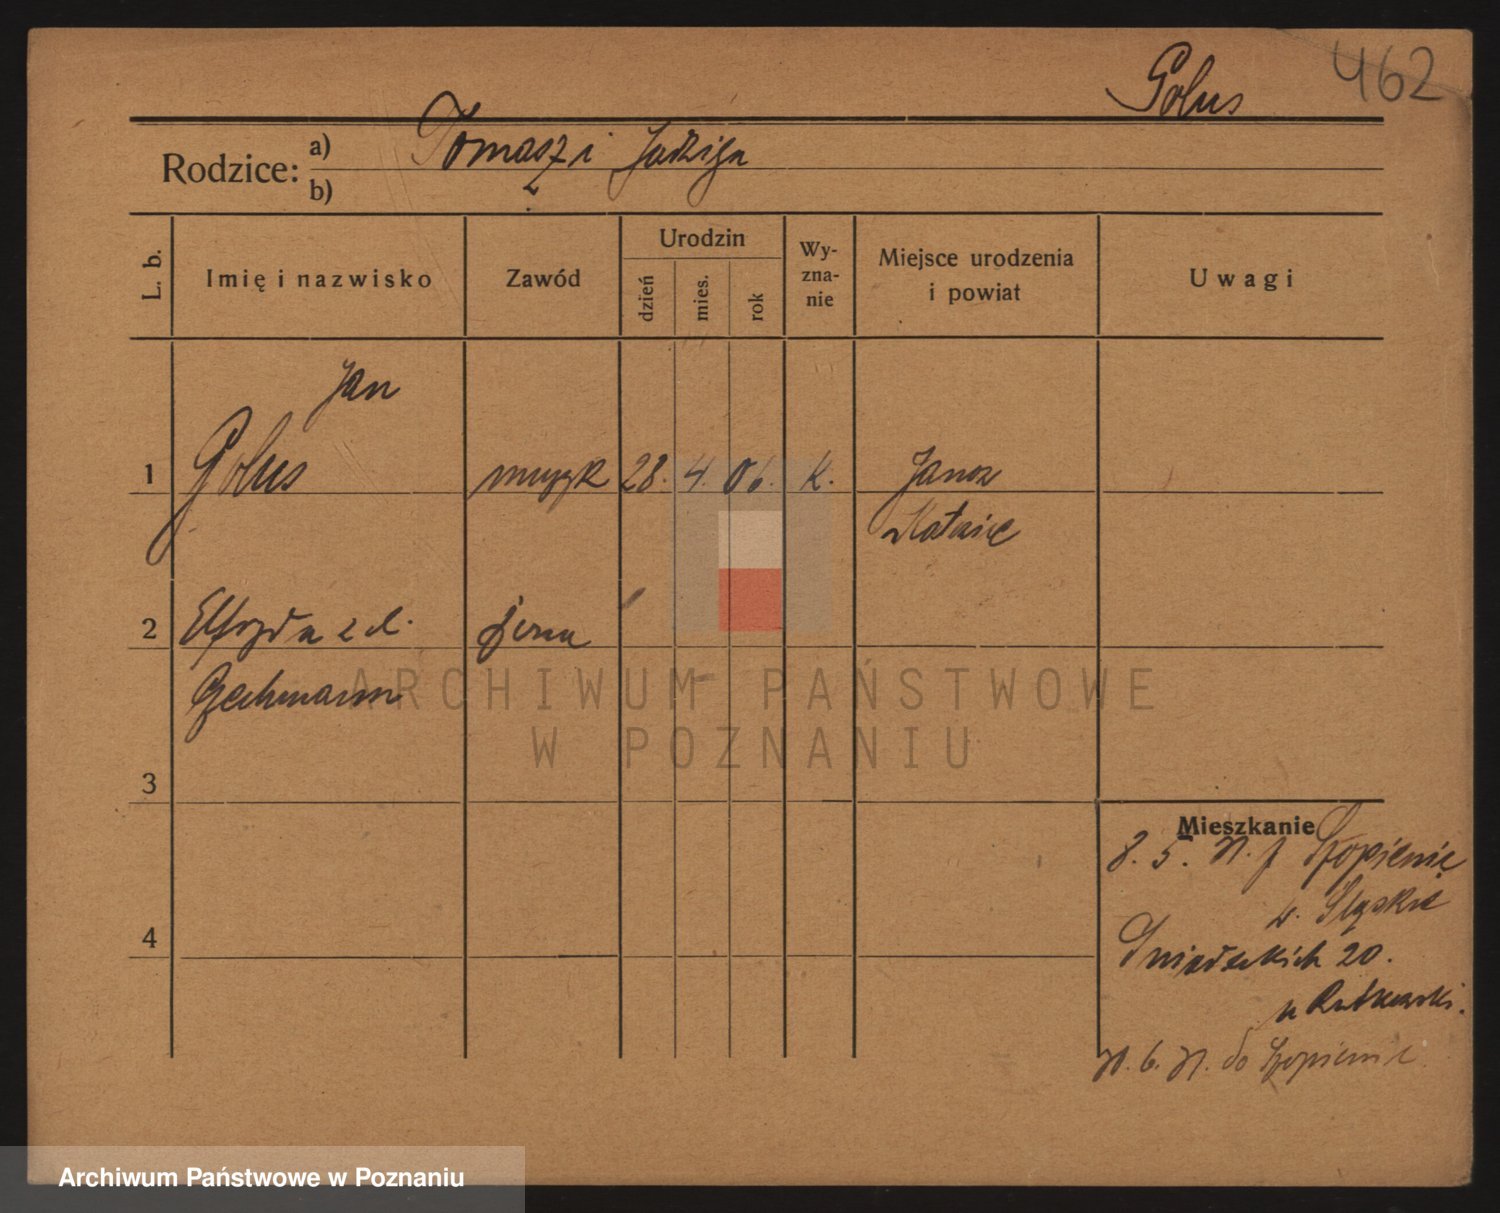 Golus 462
Rodzice: a) Tomasz i Jadwiga
b)
L. b. Imię i nazwisko Zawód Urodzin dzień mies. rok Wy-zna-nie Miejsce urodzenia i powiat Uwagi
Jan
1 Golus muzyk 28. 4. 06. k. Janow
Katowice
2 Elfryda z d. żona
3
Mieszkanie
8. 5. z Szopienic
w. Śląskie
4 Śniadeckich 20.
u
6. do Szopienic
ARCHIWUM PAŃSTWOWE
W POZNANIU
Archiwum Państwowe w Poznaniu